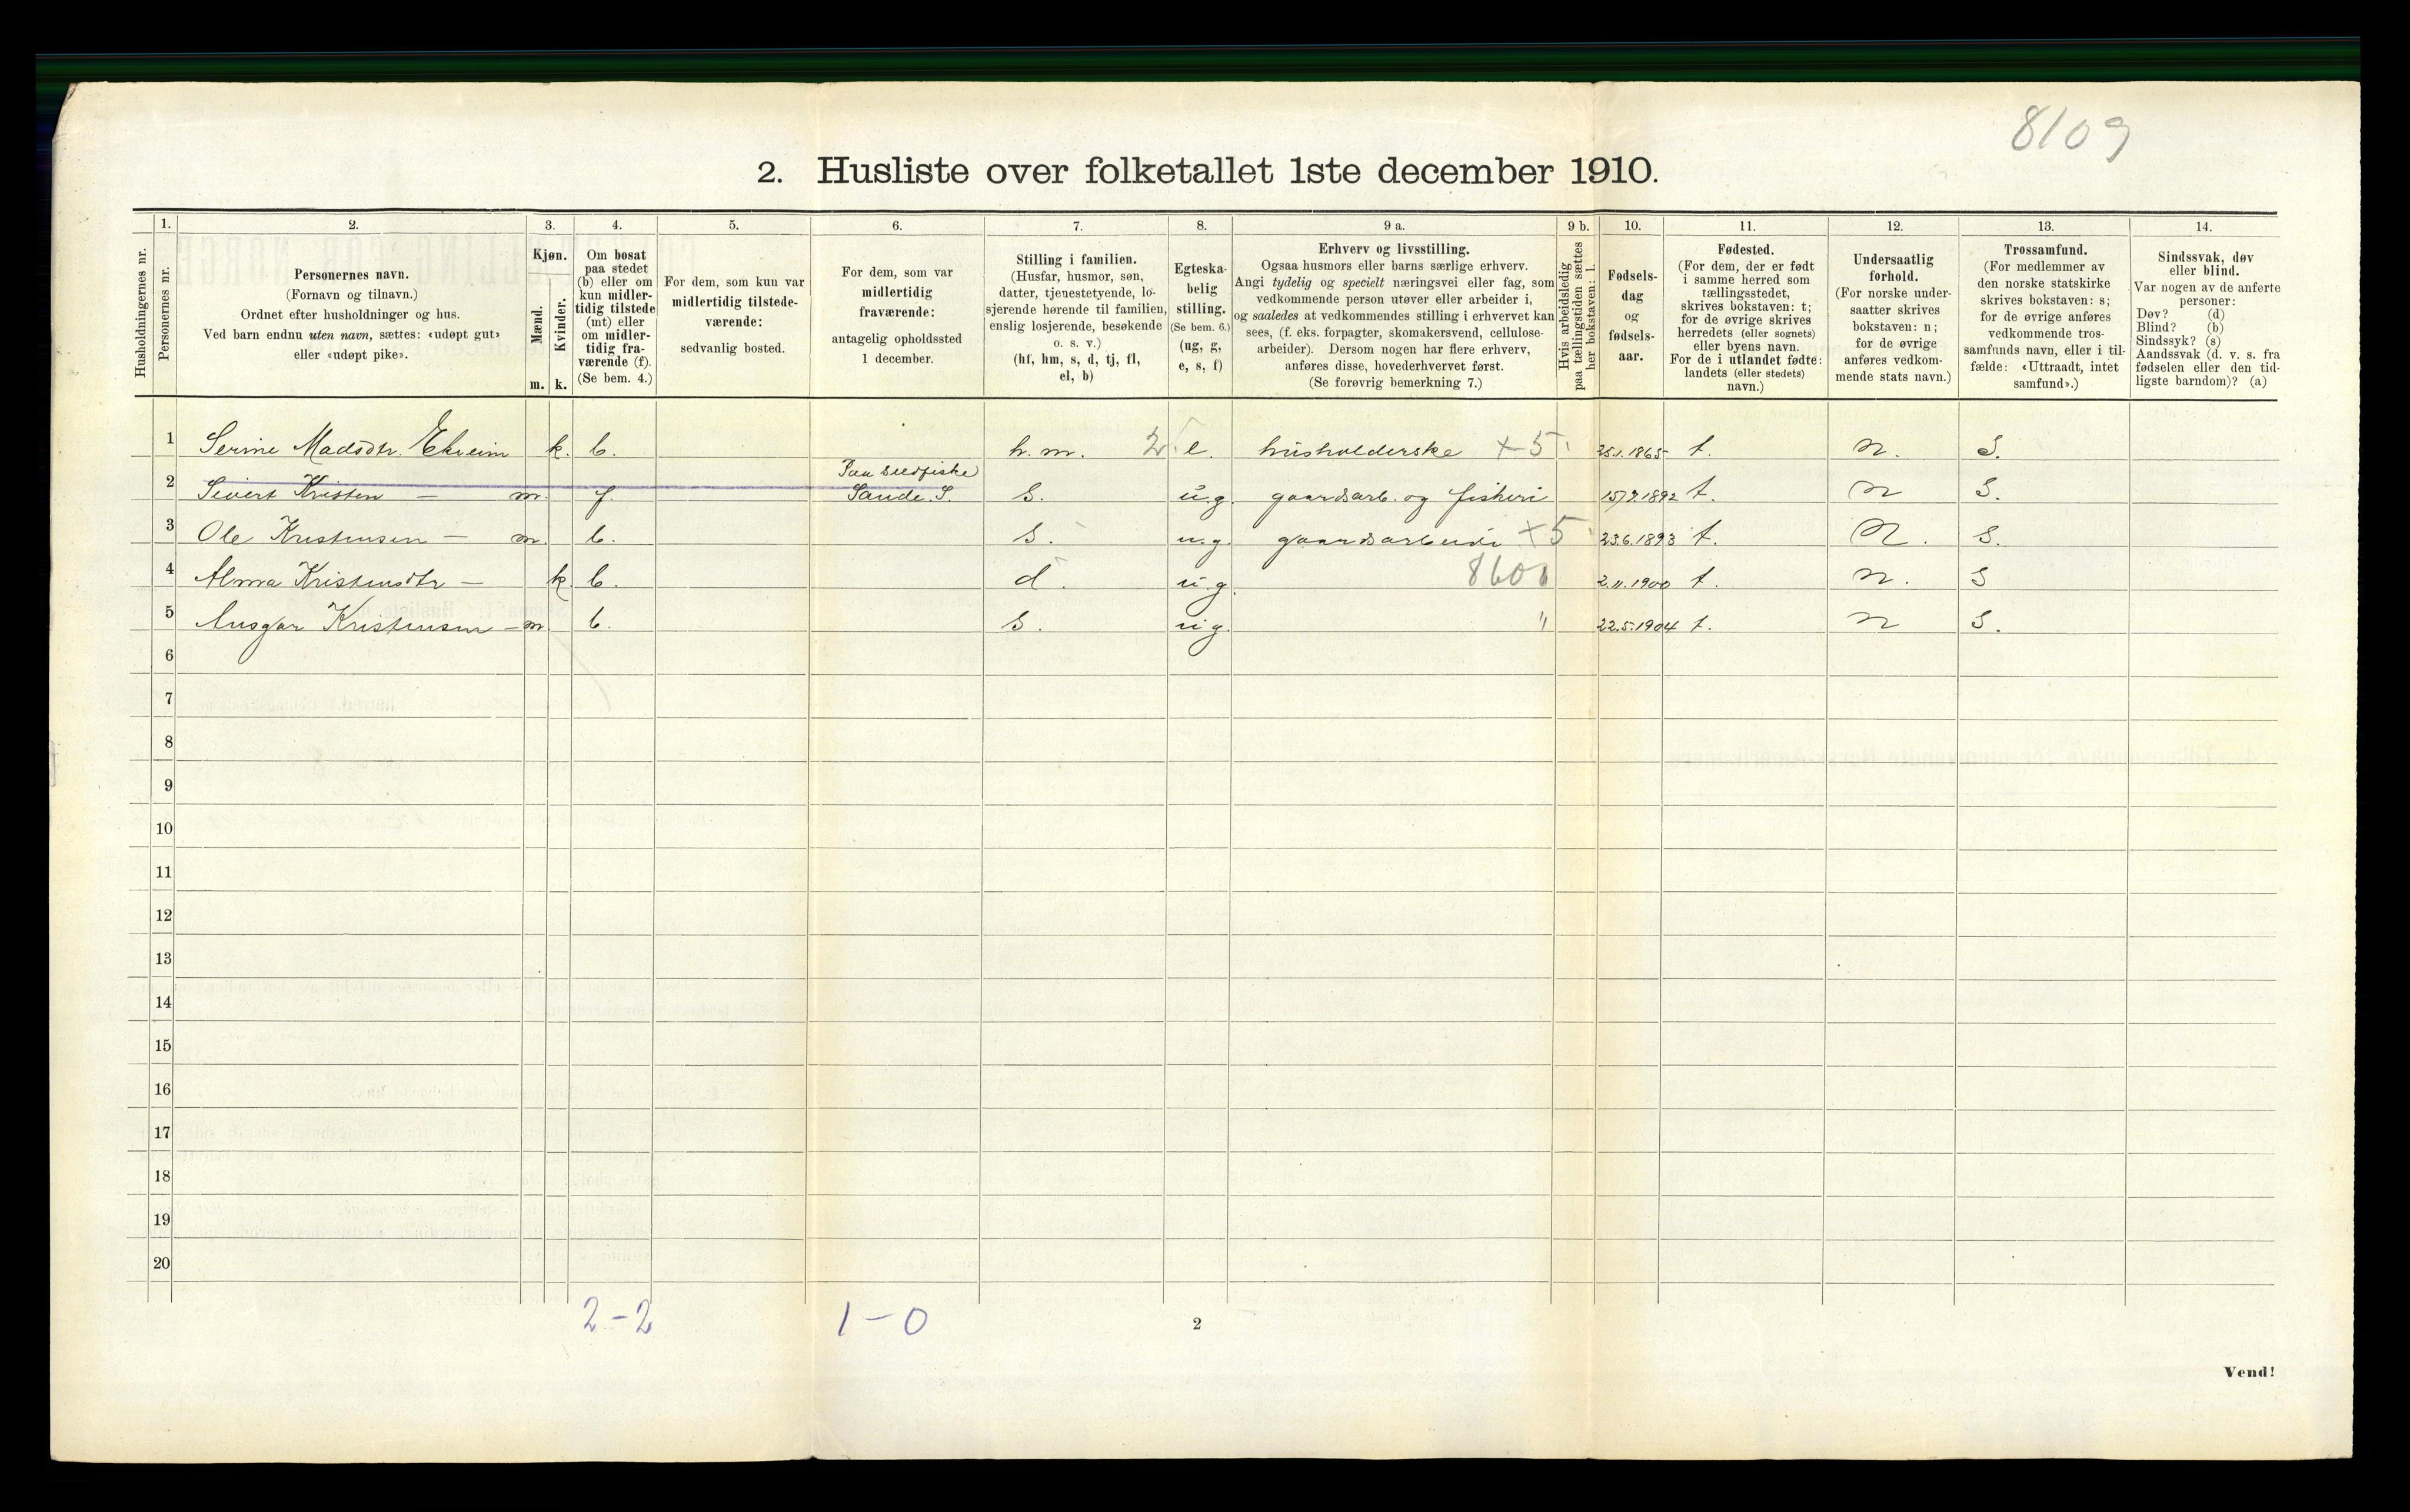 8109
2. Husliste over folketallet 1ste december 1910.
Husholdningernes nr.
1.
Personernes nr.
2.
Personernes navn.
(Fornavn og tilnavn.)
Ordnet efter husholdninger og hus.
Ved barn endnu uten navn, sættes: «udøpt gut»
eller «udøpt pike».
3.
Kjøn.
Mænd.
Kvinder.
m. k.
4.
Om bosat
paa stedet
(b) eller om
kun midler-
tidig tilstede
(mt) eller
om midler-
tidig fra-
værende (f).
(Se bem. 4.)
5.
For dem, som kun var
midlertidig tilstede-
værende:
sedvanlig bosted.
6.
For dem, som var
midlertidig
fraværende:
antagelig opholdssted
1 december.
7.
Stilling i familien.
(Husfar, husmor, søn,
datter, tjenestetyende, lo-
sjerende hørende til familien,
enslig losjerende, besøkende
o. s. v.)
(hf, hm, s, d, tj, fl,
el, b)
8.
Egteska-
belig
stilling.
(Se bem. 6.)
(ug, g,
e, s, f)
9 a.
Erhverv og livsstilling.
Ogsaa husmors eller barns særlige erhverv.
Angi tydelig og specielt næringsvei eller fag, som
vedkommende person utøver eller arbeider i,
og saaledes at vedkommendes stilling i erhvervet kan
sees, (f. eks. forpagter, skomakersvend, cellulose-
arbeider). Dersom nogen har flere erhverv,
anføres disse, hovederhvervet først.
(Se forøvrig bemerkning 7.)
9 b.
Hvis arbeidsledig
paa tællingstiden sættes
her bokstaven: l.
10.
Fødsels-
dag
og
fødsels-
aar.
11.
Fødested.
(For dem, der er født
i samme herred som
tællingsstedet,
skrives bokstaven: t;
for de øvrige skrives
herredets (eller sognets)
eller byens navn.
For de i utlandet fødte:
landets (eller stedets)
navn.)
12.
Undersaatlig
forhold.
(For norske under-
saatter skrives
bokstaven: n;
for de øvrige
anføres vedkom-
mende stats navn.)
13.
Trossamfund.
(For medlemmer av
den norske statskirke
skrives bokstaven: s;
for de øvrige anføres
vedkommende tros-
samfunds navn, eller i til-
fælde: «Uttraadt, intet
samfund».)
14.
Sindssvak, døv
eller blind.
Var nogen av de anførte
personer:
Døv? (d)
Blind? (b)
Sindssyk? (s)
Aandssvak (d. v. s. fra
fødselen eller den tid-
ligste barndom)? (a)
1 Serine Madsdtr. Ekreim k. b. h. m. 2 e. husholderske +5 25.1.1865 t. n. S.
Paa sildfiske
2 Sivert Kristen — m. f. Sande S. s. u.g. gaardsarb. og fiskeri 1892 t. n S.
3 Ole Kristensen — m. b. s. u.g. +5 23.6.1893 t. N. S.
4 Alma Kristensdtr — k. b. d. u.g. 8600 2.11.1900 t. n. S
5 Ansgar Kristensen — m. b. s. u.g. " 22.5.1904 t. n S.
6
7
8
9
10
11
12
13
14
15
16
17
18
19
20
2-2 1-0
2
Vend!